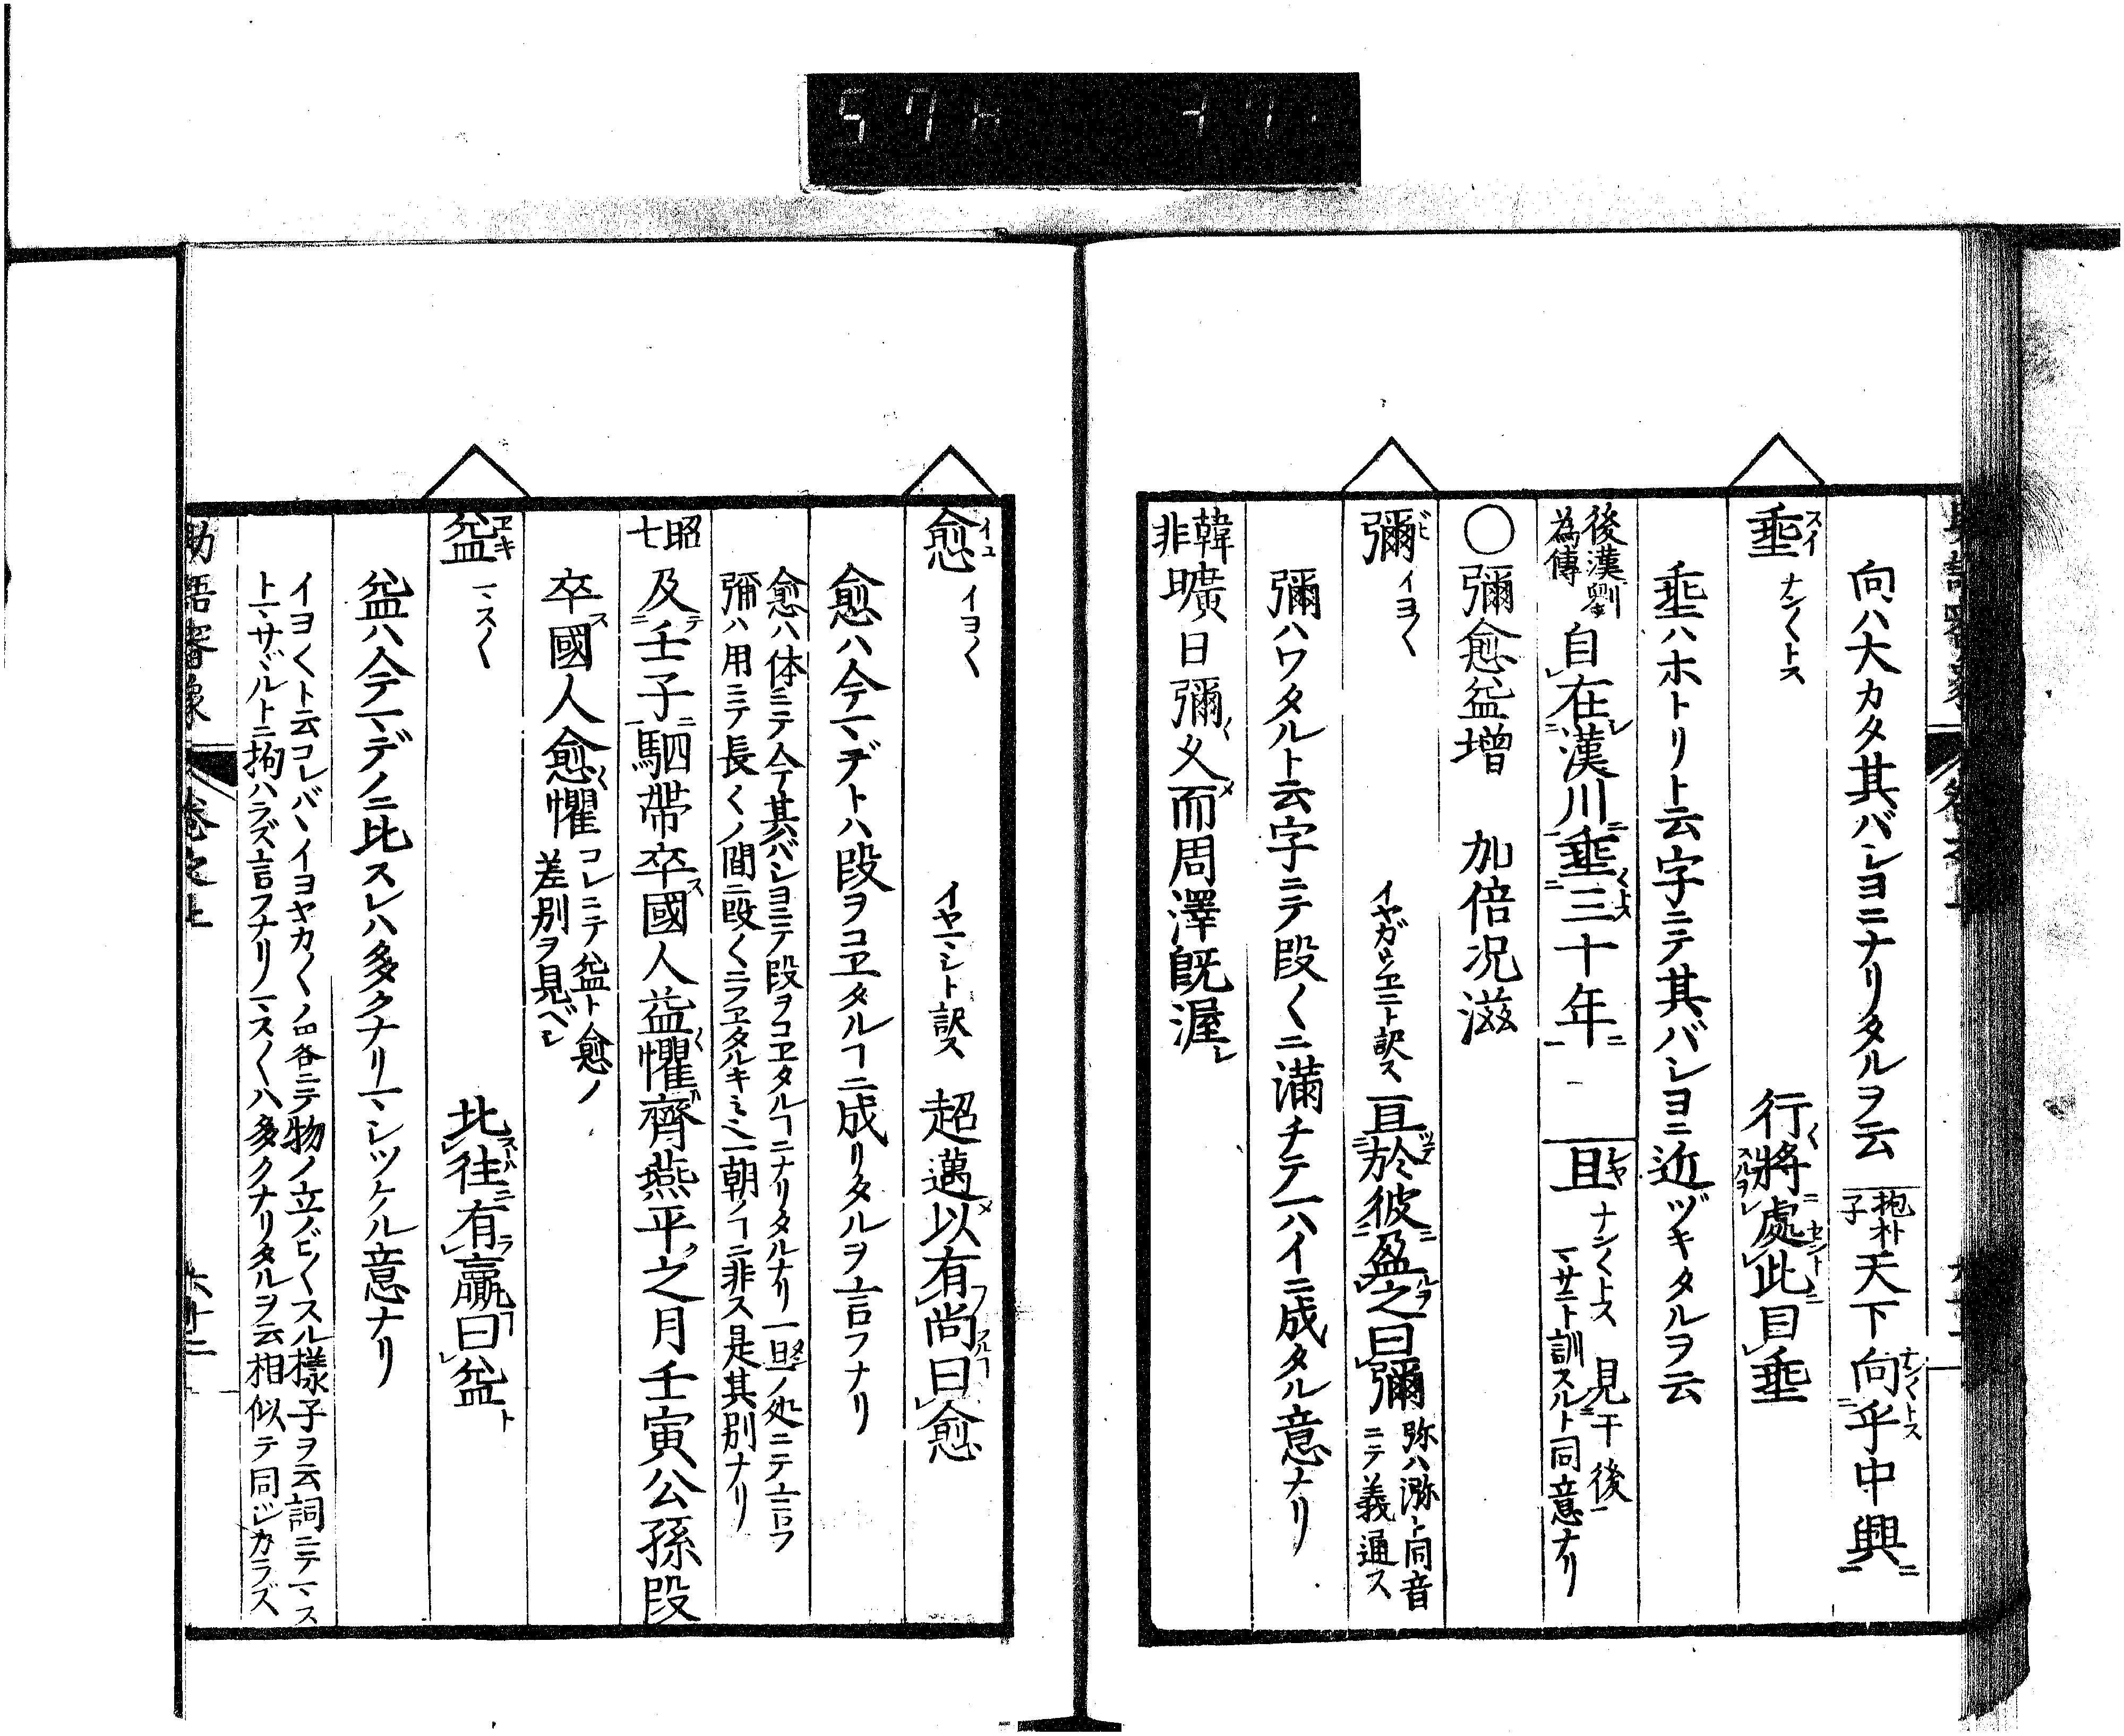 向ハ大カタ其バシヨニナリタルヲ云 抱朴子 天下向乎中興
垂 スイ ナン〱トス 行將處此目垂
垂ハホトリト云字ニテ其バシヨニ近ヅキタルヲ云
後漢劉為傳 自在漢川垂三十年 且 ナン〱トス 見干後 マサニト訓スルト同意ナリ
〇彌愈益增 加倍況滋
彌 ビ イヨ〱 イヤガウエニト訳ス 亘於彼盈之曰彌 弥ハ瀰ト同音ニテ義通ス
彌ハワタルト云字ニテ段〱ニ滿チテ一ハイニ成タル意ナリ
韓非 曠日彌久而周澤既渥
愈 イユ イヨ〱 イヤマシト訳ス 超邁以有尚曰愈
愈ハ今テマデトハ段ヲコヱタルヿニ成リタルヲ言フナリ
愈ハ体ニテ今其バシヨニテ段ヲコヱタルヿニナリタルナリ一旦ノ処ニテ言フ
彌ハ用ニテ長〱ノ間ニ段〱ニフヱタルキミニ一朝ノヿニ非ス是其別ナリ
昭七 及壬子駟帶卒國人益懼齊燕平之月壬寅公孫段
卒國人愈懼 コレニテ益ト愈ノ差別ヲ見ベシ
益 ヱキ マス〱 北往有贏曰益
益ハ今テマデノニ比スレハ多クナリマシツケル意ナリ
イヨ〱ト云コレバイヨヤカ〱ノ畧ニテ物ノ立ノビ〱スル樣子ヲ云詞ニテマス
トマサルトニ拘ハラズ言フナリマス〱ハ多クナリタルヲ云相似テ同ジカラズ
助語審象 卷之上 六十二